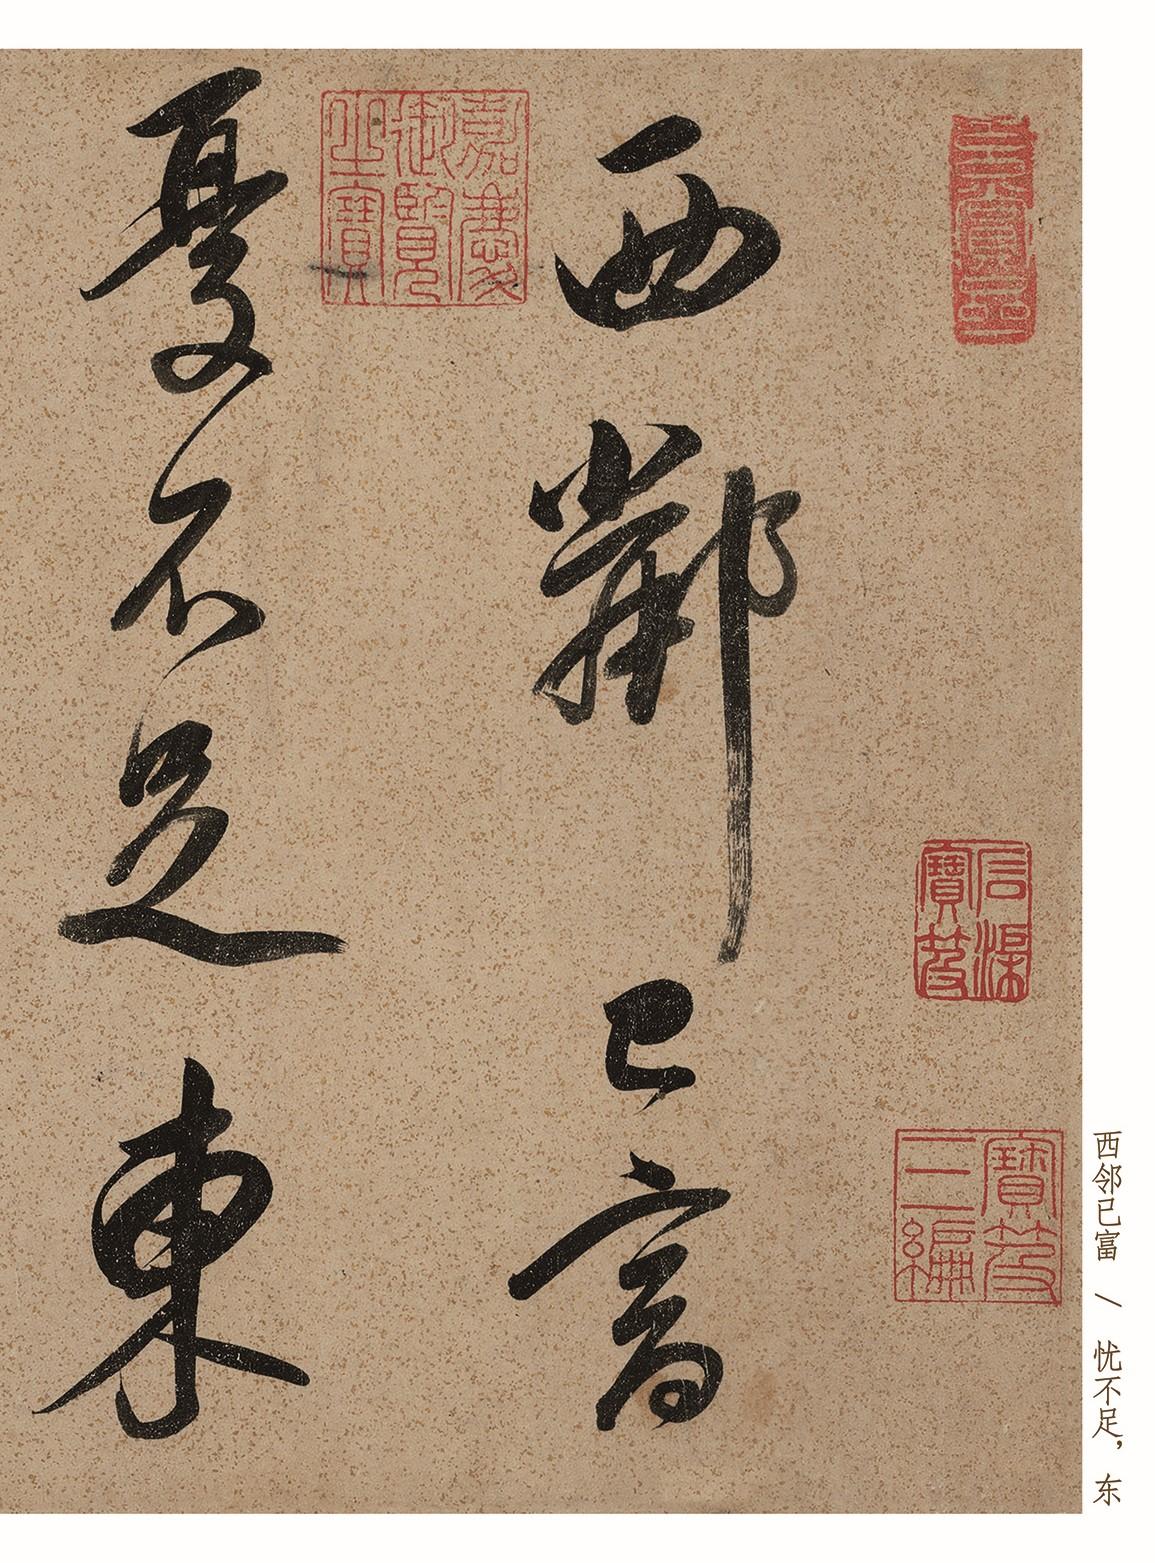 西邻已富 / 忧不足，东
石渠
寶笈
寶笈
三編
西鄰已富
嘉慶
御覽
之寶
憂不足東